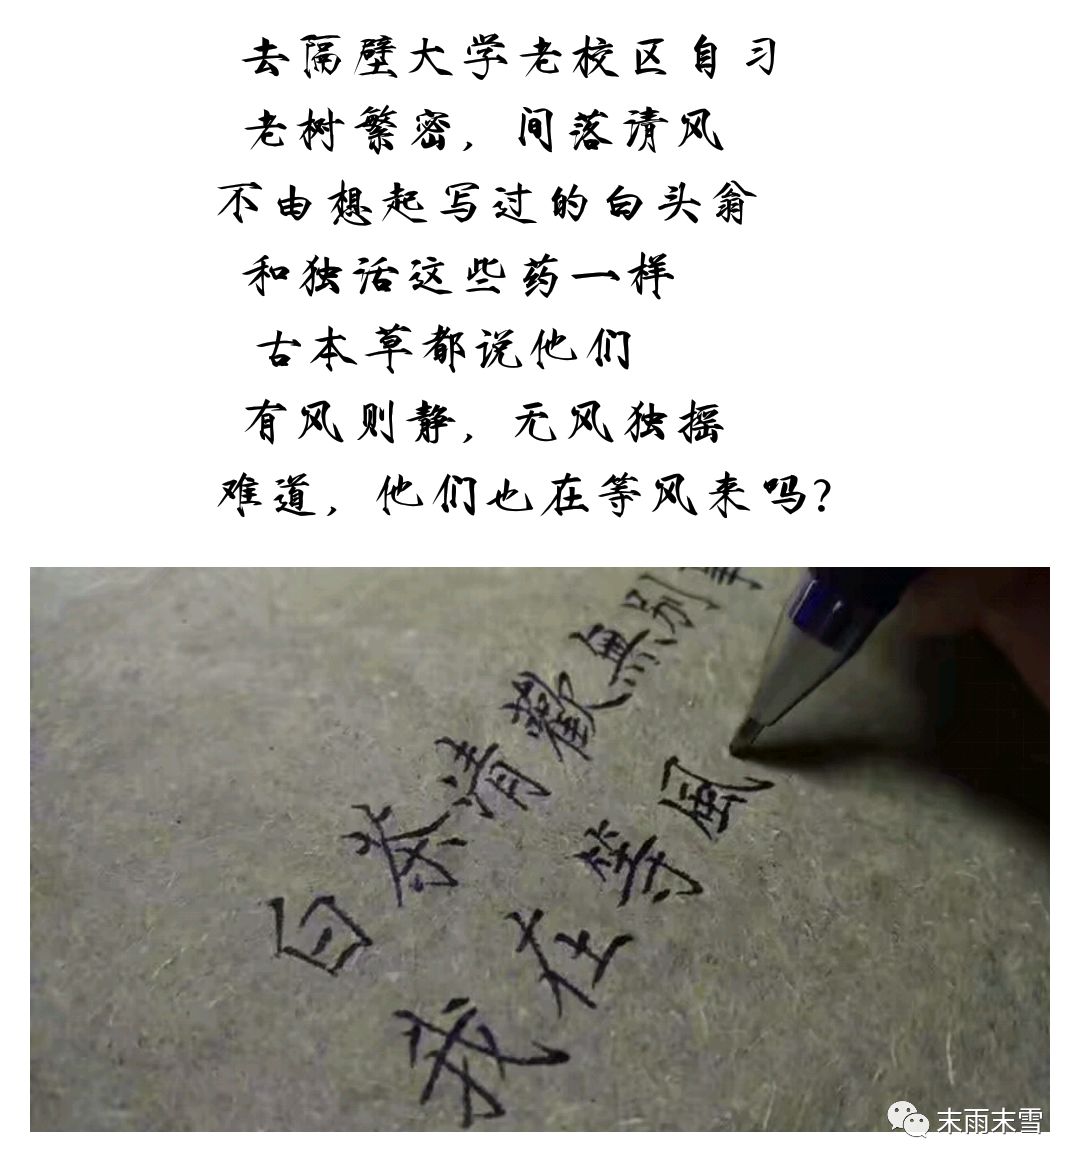 去隔壁大学老校区自习
老树繁密，间落清风
不由想起写过的白头翁
和独活这些药一样
古本草都说他们
有风则静，无风独摇
难道，他们也在等风来吗?
白茶清歡無别
我在等風
末雨末雪